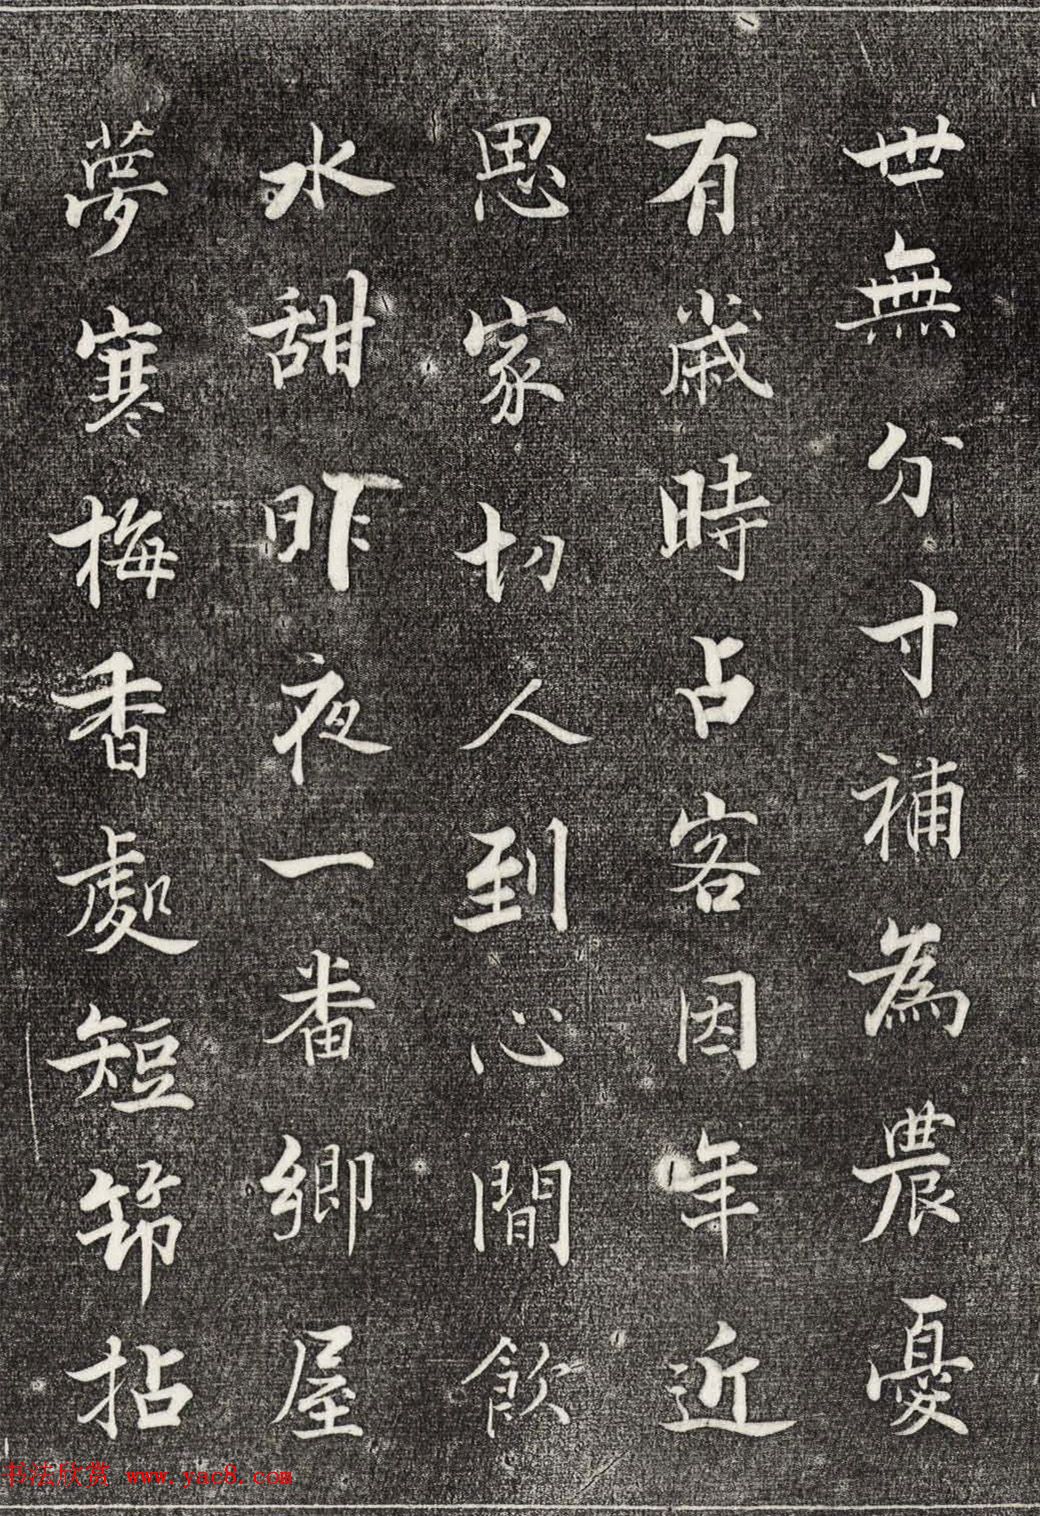 世無分寸補為農憂
有歲時占客因年近
思家切人到心間飲
水甜昨夜一番鄉屋
夢寒梅香處短筇拈
书法欣赏 www.yac8.com